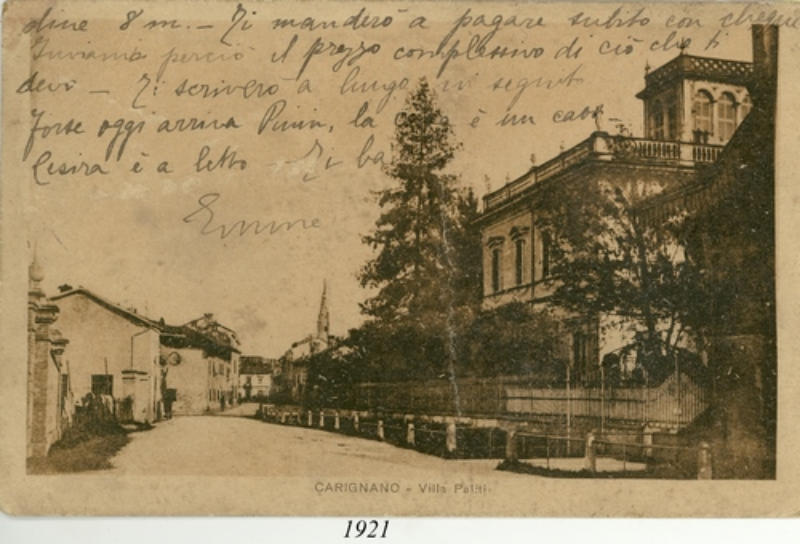 dine 8 m. - Ti manderò a pagare subito con cheque
Inviami perciò il prezzo complessivo di ciò che ti
devo - Ti scriverò a lungo in seguito
Forse oggi arriva Pinin, la è un caos
Cesira è a letto Ti ba
CARIGNANO - Villa
1921